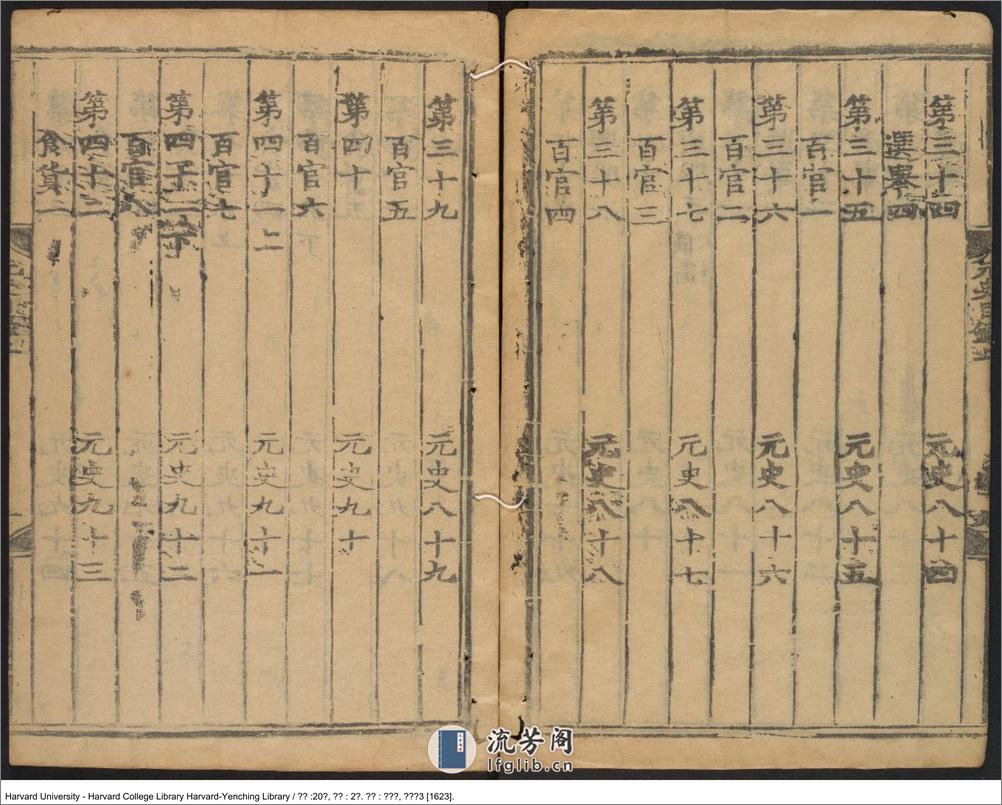 元史目錄
第三十四 元史八十四
選舉四
第三十五 元史八十五
百官一
第三十六 元史八十六
百官二
第三十七 元史八十七
百官三
第三十八 元史八十八
百官四
第三十九 元史八十九
百官五
第四十 元史九十
百官六
第四十一上 元史九十一
百官七
第四十一下 元史九十二
百官八
第四十二 元史九十三
食貨一
流芳阁
lfglib.cn
Harvard University - Harvard College Library Harvard-Yenching Library / ?? :20?, ?? : 2?. ?? : ???, ???3 [1623].